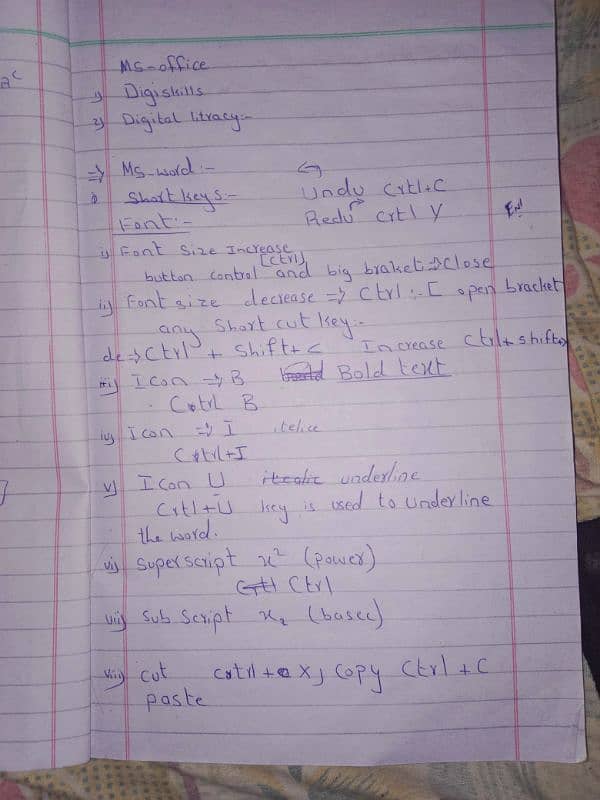 MS-office
1) Digiskills
2) Digital litracy:-
=> MS-word:-
Short keys:-
Undu Crtl+C
Font:-
Redu Crtl Y
i) Font Size Increase
button control [Ctrl] and big braket => Close
ii) Font size decrease => Ctrl :- [ open bracket
any Short cut key:-
de => Ctrl + Shift + < Increase Ctrl + shift >
iii) Icon => B Bold text
Cotrl B
iv) Icon => I itelice
Cotrl+I
v) Icon U itealic underline
Crtl+U key is used to underline
the word.
vi) Superscript x² (power)
Ctrl
vii) Sub Script x₂ (basec)
viii) cut cotrl + X, Copy Ctrl + C
paste